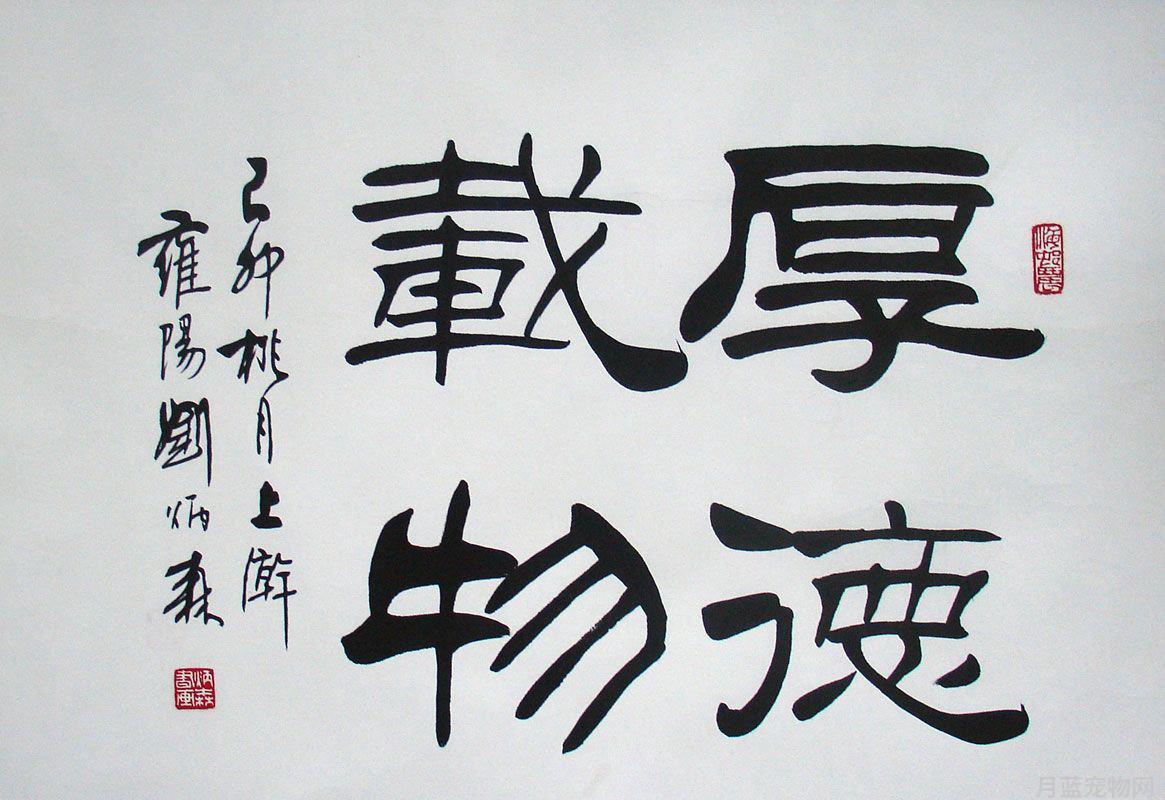 厚德
載物
己卯桃月上澣
雍陽劉炳森
炳森書画
月蓝宠物网